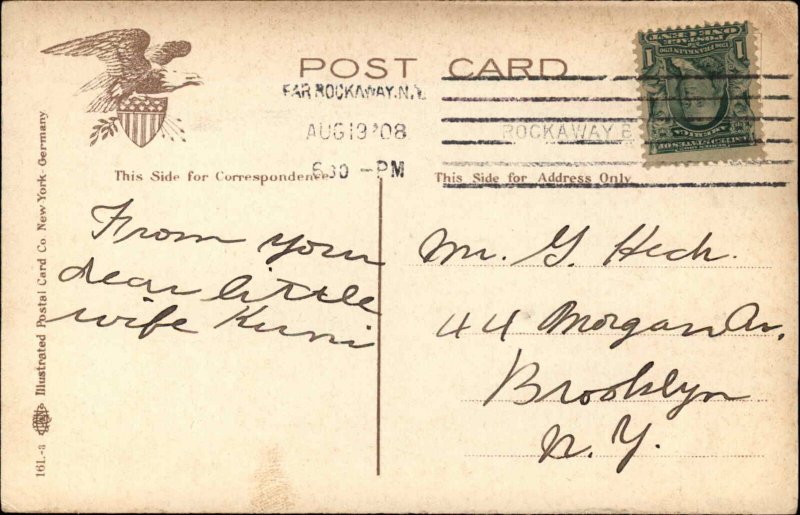 POST CARD
FAR ROCKAWAY.N.Y.
AUG 19 '08
630 -PM
ROCKAWAY B
1
This Side for Correspondence
This Side for Address Only
From your
dear little
wife Kuni
Mr. G. Hech.
44 Morgan Av.
Brooklyn
N. Y.
161.-8 Illustrated Postal Card Co. New York-Germany